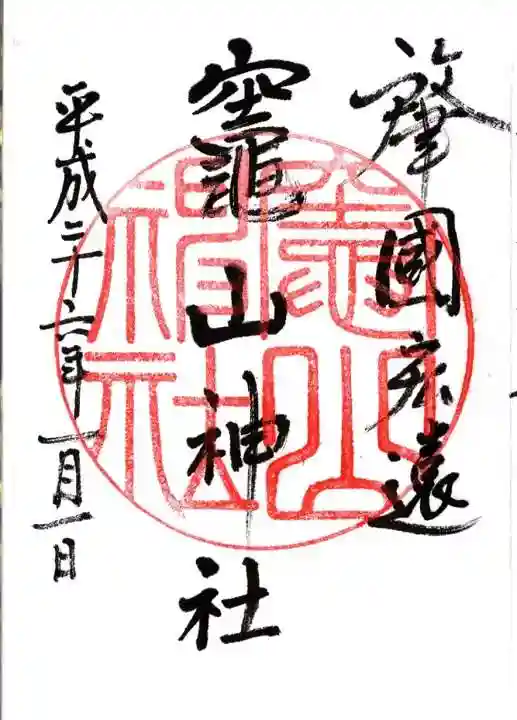 肇國宏遠
竈山神社
平成二十六年一月一日
竈山神社